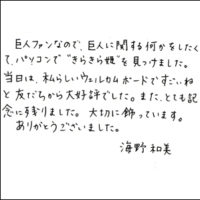 巨人ファンなので、巨人に関する何かをしたく
て、パソコンで"きらきら姫"を見つけました。
当日は、私らしいウェルカムボードですごいね
と友だちから大好評でした。また、とても記
念に残りました。大切に飾っています。
ありがとうございました。
海野和美